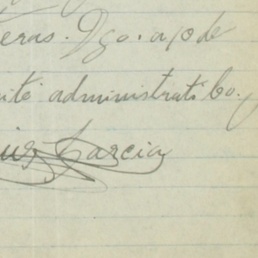 eras. Dgo. a 10 de
ito administratibo.
uis Garcia